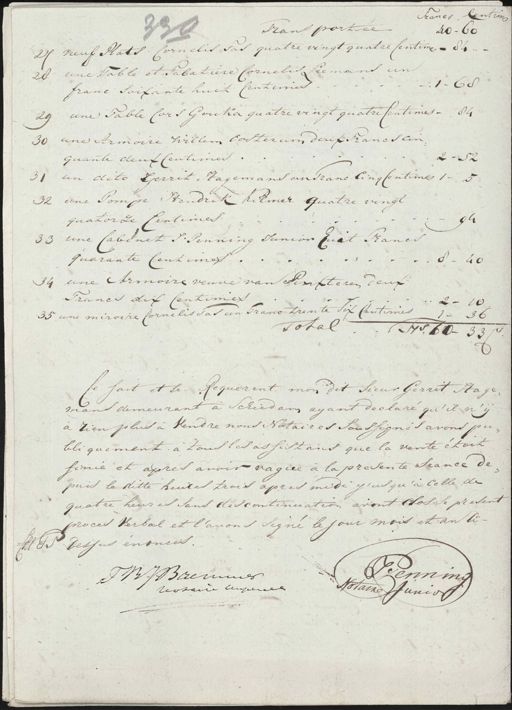 330
Francs. Centims
Transportée 40-60
27 neuf Plats Cornelis Sas quatre vingt quatre Centime - 84 -
28 une Table et Tabatiere Cornelis Leemans un
franc Soixante huit Centimes 1-68
29 une Table Cors Gouka quatre vingt quatre Centimes - 84
30 une Armoire Willem Oosterum deux Francs Cin
quante deux Centimes 2-52
31 un dito Gerrit Hagemans un Franc Cinq Centimes 1-5
32 une Pompe Hendrik quatre vingt
quatorze Centimes 94
33 une Cabinet P. Penning Junior Huit Francs
quarante Centimes 8-40
34 une Armoire veuve van deux
Francs dix Centimes 2-10
35 une miroire Cornelis Sas un Franc trente Six Centimes 1-36
Total 60-33
Ce fait et le Requerent mon dit Sieur Gerret Hage
mans demeurant à Schiedam ayant declaré qu'il n'y
à rien plus à Vendre nous Notaires Soussignés avons pu
bliquement à tous les assistans que la vente étoit
finie et apres avoir vaqué à la presente séance de
puis la ditte heures trois apres midi jusqu'à Celle de
quatre heures sans discontinuation avons clos le present
proces Verbal et l'avons signé le jour mois et an ci
dessus enoncés.
Bremmer
Penning
Notaire Junior